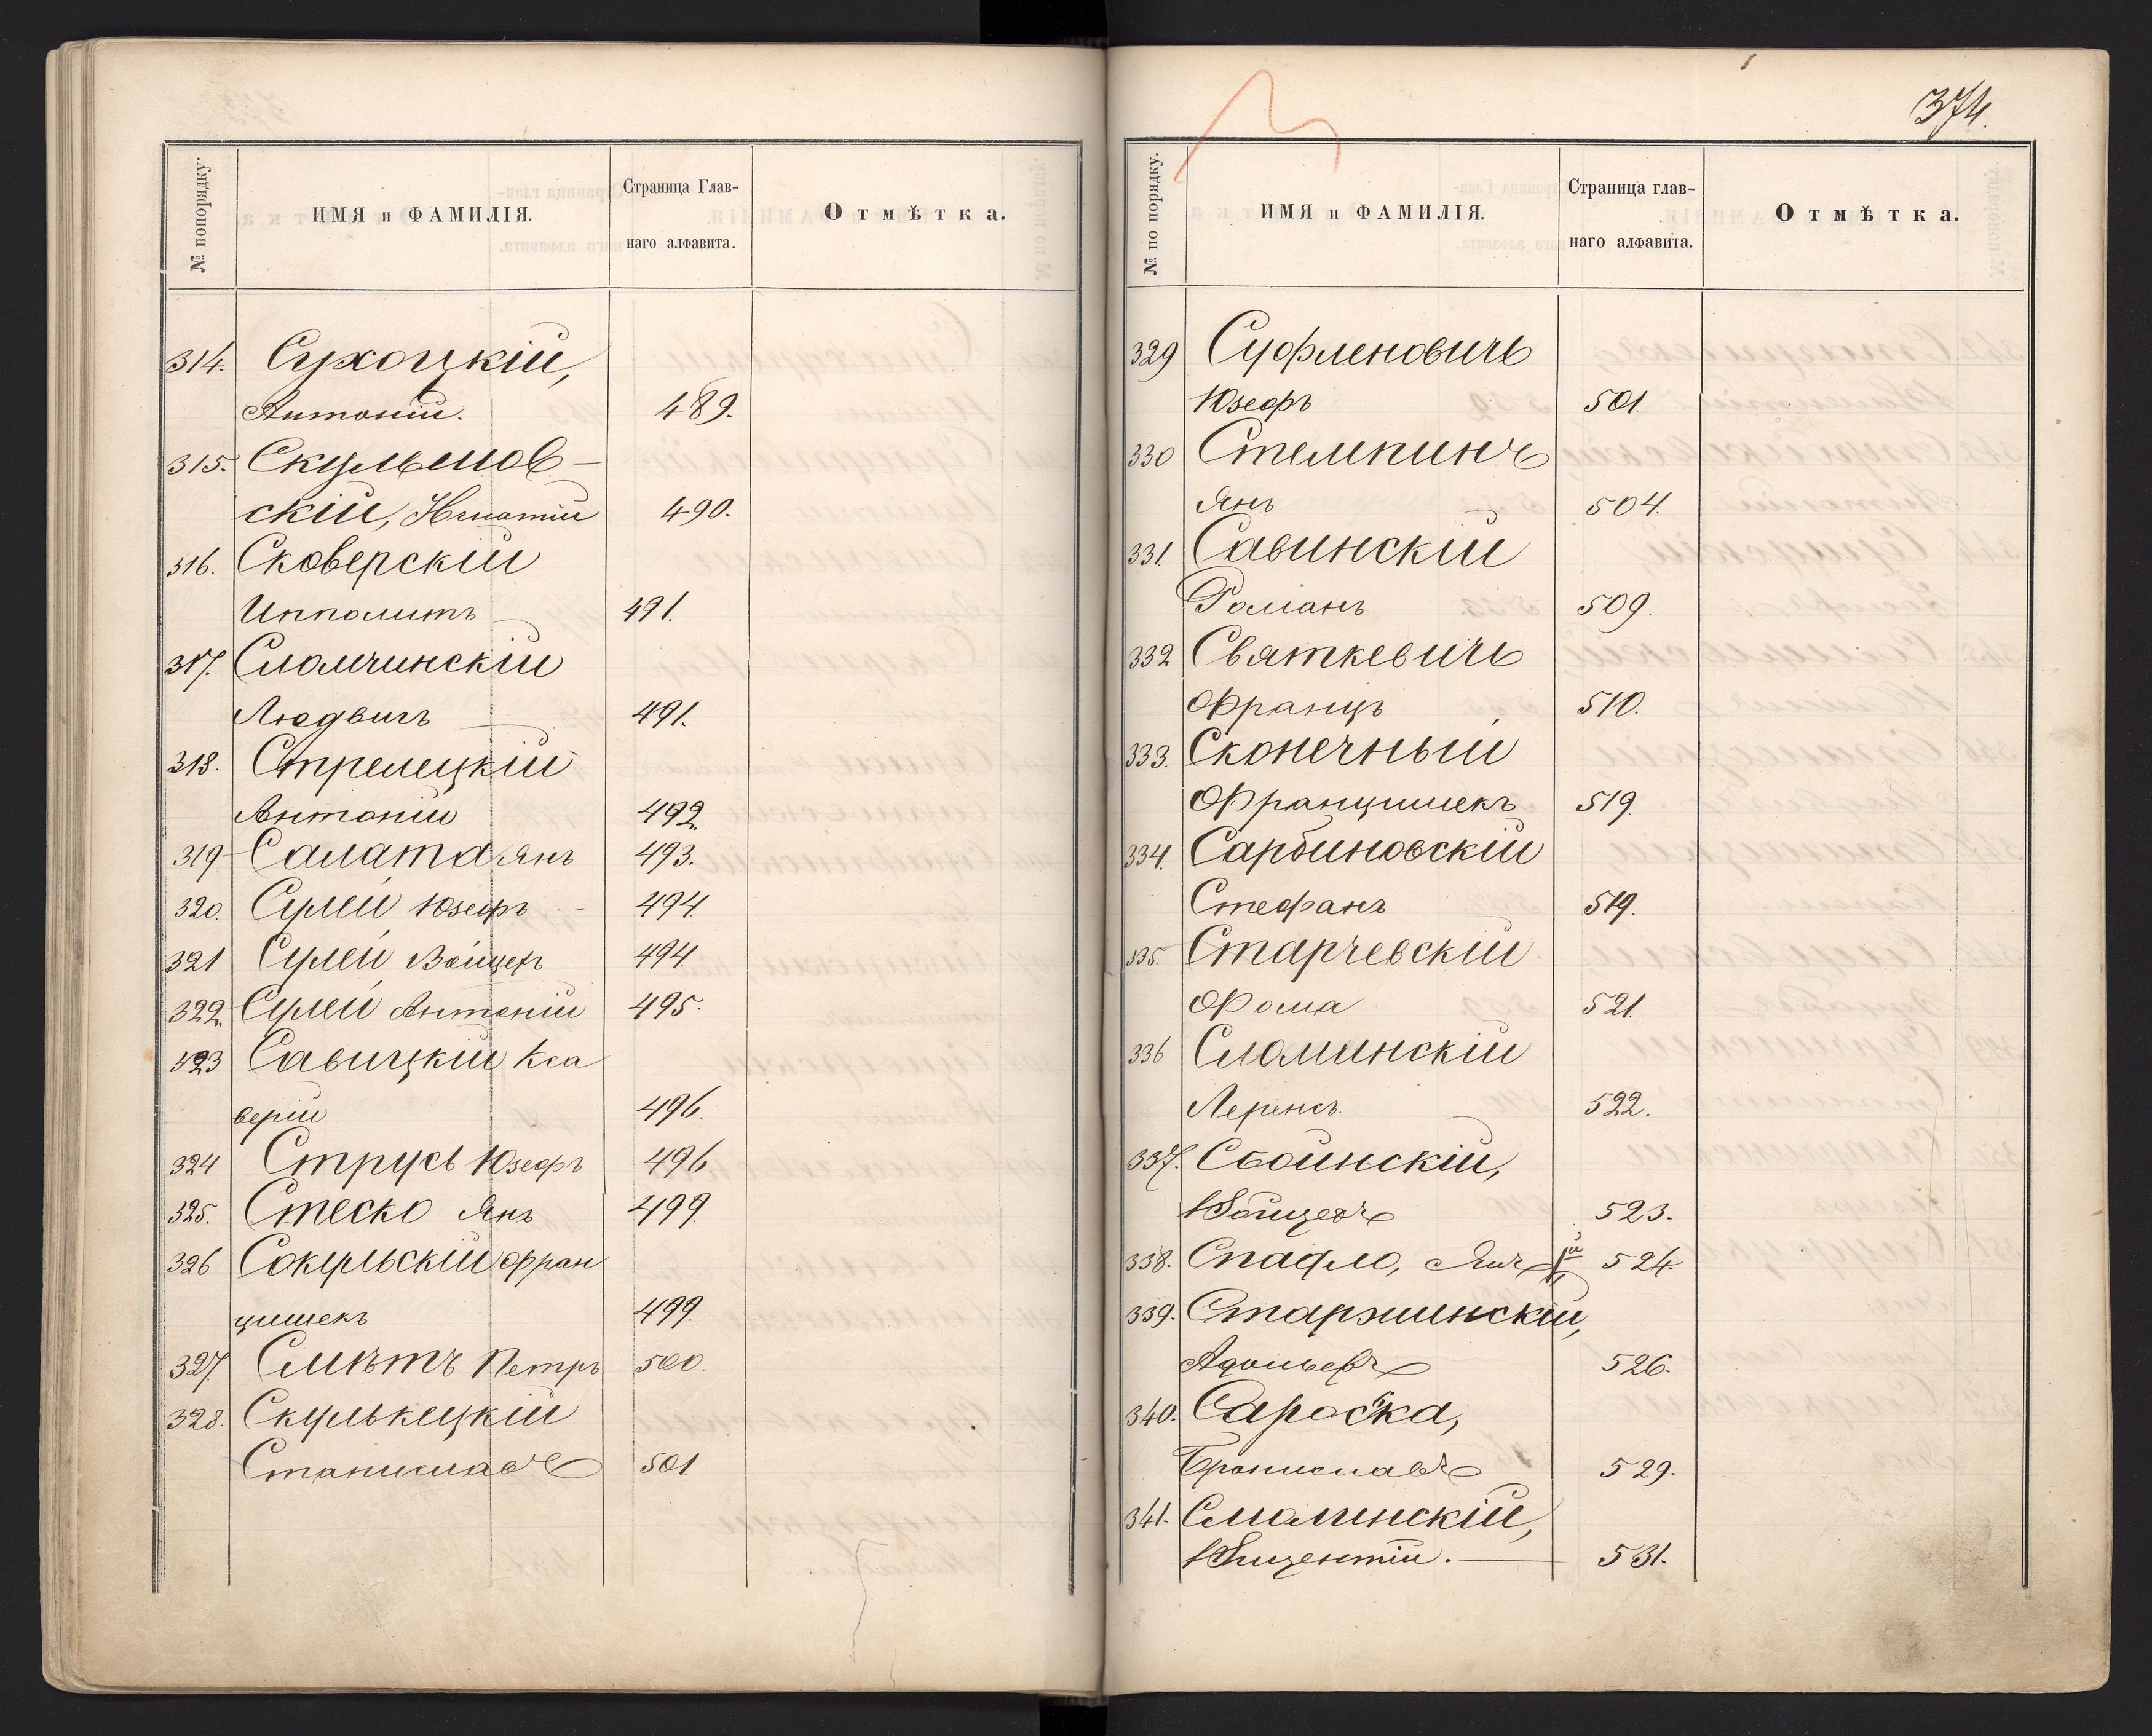 № попорядку.
ИМЯ и ФАМИЛІЯ.
Страница Глав-
наго алфавита.
Отмѣтка.
314. Сухоцкій,
Антоній. 489.
315. Скульмов-
скій, Игнатій 490.
316. Сковерскій
Ипполитъ 491.
317. Сломчинскій
Людвигъ 491.
318. Стрелецкій
Антоній 492.
319 Салата Янъ 493.
320. Сулей Юзефъ - 494
321 Сулей Войцех 494
322. Сулей Антоній 495.
323 Савицкій Кса
верій 496.
324 Струсь Юзефъ 496.
325. Стеско Янъ 499.
326 Сокульскій Фран
цишекъ 499.
327. Смѣтъ Петръ 500.
328. Скулькецкій
Станиславъ 501.
374.
№ по порядку.
ИМЯ и ФАМИЛІЯ.
Страница глав-
наго алфавита.
Отмѣтка.
329 Суфленовичъ
Юзефъ 501.
330 Стемпинъ
Янъ 504.
331. Савинскій
Романъ 509.
332 Святкевичъ
Францъ 510.
333. Сконечный
Францишекъ 519.
334. Сарбиновскій
Стефанъ 519.
335. Старчевскій
Фома 521.
336 Сломинскій
522.
337. Сбоинскій,
Войцехъ 523.
338. Спадло, Янъ 524.
339. Старжинскій,
Адольфъ 526.
340. Сароска,
Брониславъ 529.
341. Смолинскій,
Вицентій. — 531.